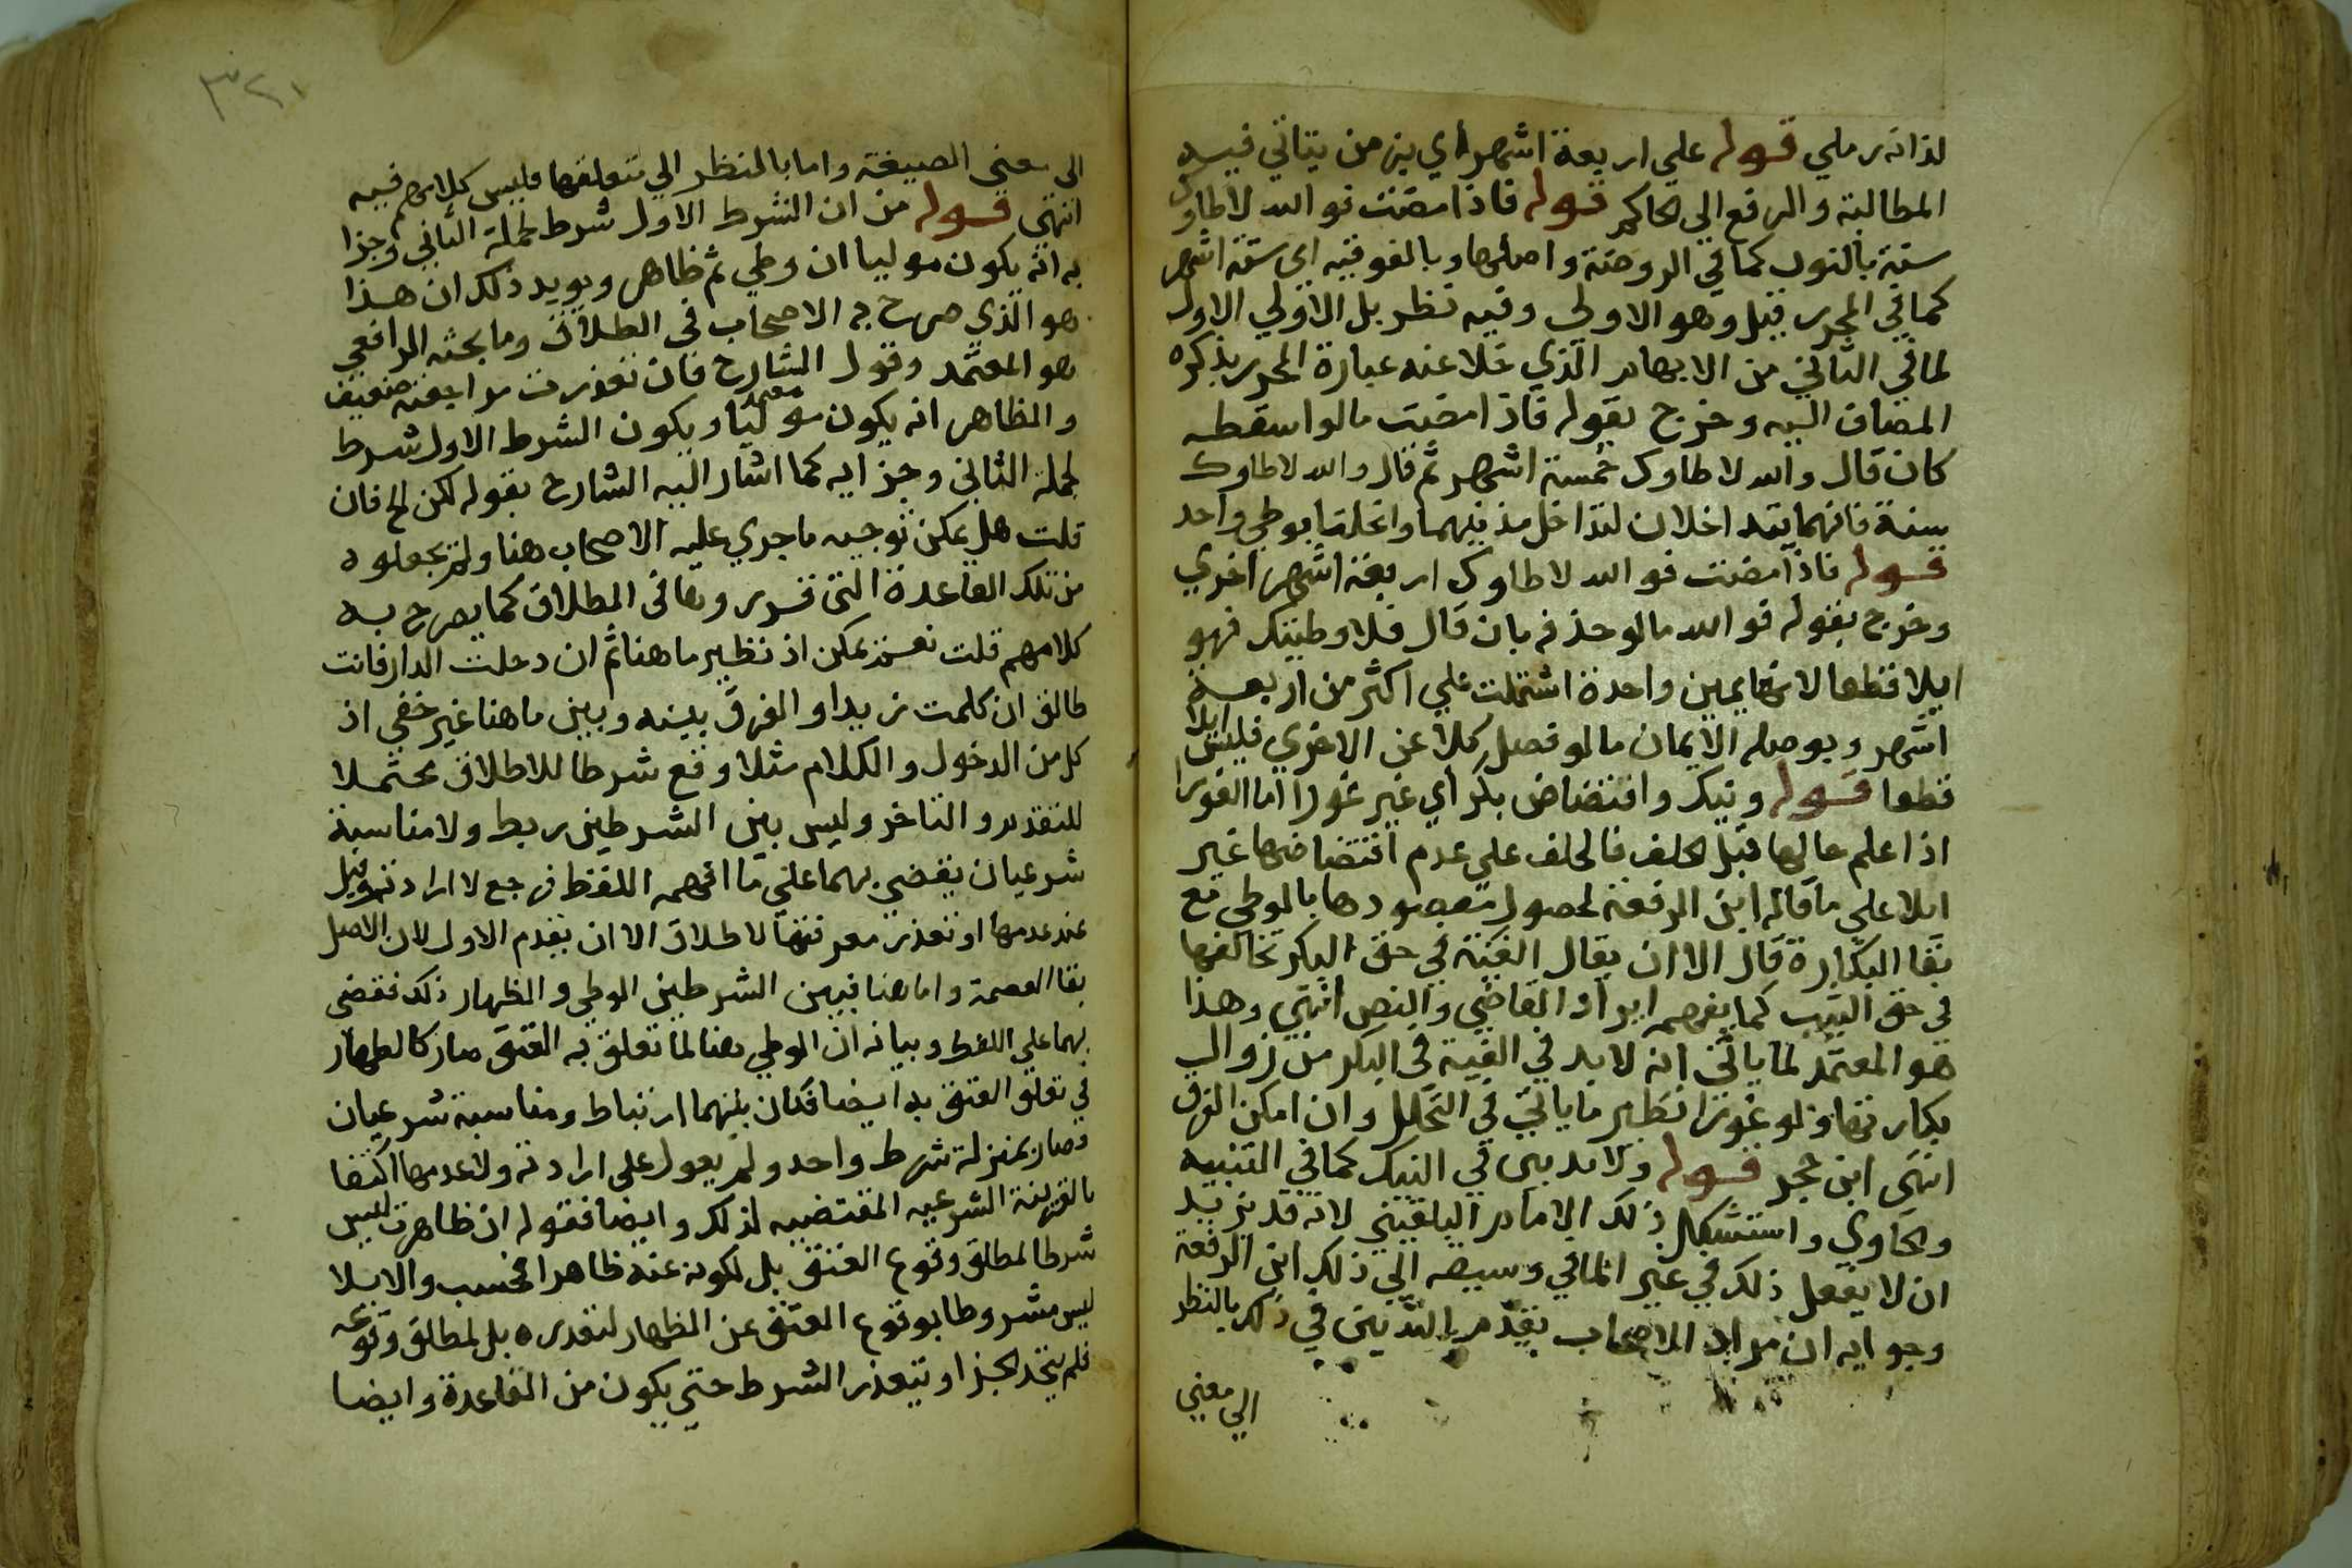 لذاته رملي قوله علي اربعة اشهر أي بزمن يتاتي فيه
المطالبة والرفع الي الحاكم قوله فاذا مضت فوالله لا طاوتك
سنة بالنون كما في الروضة واصلها وبالفوقيه اي ستة اشهر
كما في المحرر قيل وهو الاولي وفيه نظر بل الاولي الاول
لما في الثاني من الايهام الذي خلا عنه عبارة المحرر بذكره
المضاف اليه وخرج بقوله فاذا مضت مالو اسقطه
كان قال والله لا طاوك خمسة اشهر ثم قال والله لا طاوك
سنة فانهما يتداخلان لتداخل مدتيهما وانحلتا بوطي واحد
قوله فاذا مضت فوالله لا طاوك اربعة اشهر اخري
وخرج بقوله فوالله مالو حذفه بان قال فلا وطيتك فهو
ايلا قطعا لانها يمين واحدة اشتملت علي اكثر من اربعة
اشهر وبوصله الايمان مالو فصل كلا عن الاخري فليس ايلا
قطعا قوله ونيك وافتضاض بكر أي غير غورا اما الغورا
اذا علم حالها قبل الحلف فالحلف علي عدم افتضاضها غير
ايلا علي ما قاله ابن الرفعة لحصول مقصودها بالوطي مع
بقا البكارة قال الا ان يقال الفيئة في حق البكر تخالفها
في حق الثيب كما يفهمه ايراد القاضي والنص انتهي وهذا
هو المعتمد لما ياتي انه لا بد في الفية في البكر من زوال
بكارتها ولو غورا نظير ما ياتي في التحلل وان امكن الفرق
انتهي ابن حجر قوله ولا يدين في النيك كما في التنبيه
والحاوي واستشكل ذلك الامام البلقيني لانه قد يريد
ان لا يفعل ذلك في غير الماتي وسبقه الي ذلك ابن الرفعة
وجوابه ان مراد الاصحاب بعدم التديين في ذلك بالنظر
الي معني
٣٢١
الى معنى الصيغة واما بالنظر الي متعلقها فليس كلامهم فيه
انتهي قوله من ان الشرط الاول شرط لجملة الثاني وجزا
به انه يكون موليا ان وطي ثم ظاهر ويويد ذلك ان هذا
هو الذي صرح به الاصحاب في الطلاق وما بحثه الرافعي
هو المعتمد وقول الشارح فان تعذرت مراجعته ضعيف
والظاهر انه يكون موليا معتمد ويكون الشرط الاول شرط
لجملة الثاني وجزايه كما اشار اليه الشارح بقوله لكن الخ فان
قلت هل يمكن توجيه ما جري عليه الاصحاب هنا ولم يجعلوه
من تلك القاعدة التي قرروها في الطلاق كما يصرح به
كلامهم قلت نعم يمكن اذ نظير ما هنا ثم ان دخلت الدار فانت
طالق ان كلمت زيدا والفرق بينه وبين ما هنا غير خفي اذ
كل من الدخول والكلام مثلا وقع شرطا للاطلاق محتملا
للتقدم والتاخر وليس بين الشرطين ربط ولا مناسبة
شرعيان يقضي بهما علي ما افهمه اللفظ فرجع لارادته وقيل
عند عدمها او تعذر معرفتها لا طلاق الا ان يقدم الاول لان الاصل
بقا العصمة واما هنا فبين الشرطين الوطي والظهار ذلك فقضي
بهما علي اللفظ وبيانه ان الوطي هنا لما تعلق به العتق صار كالظهار
في تعلق العتق به ايضا فكان بينهما ارتباط ومناسبة شرعيان
وصار بمنزلة شرط واحد ولم يعول علي ارادته ولا عدمها اكتفا
بالقرينة الشرعيه المقتضيه لذلك وايضا فقوله ان ظاهرت ليس
شرطا لمطلق وقوع العتق بل لكونه عنه ظاهرا فحسب والايلا
ليس مشروطا بوقوع العتق عن الظهار لتقدره بل لمطلق وقوعه
فلم يتحد الجزا ويتعذر الشرط حتي يكون من القاعدة وايضا